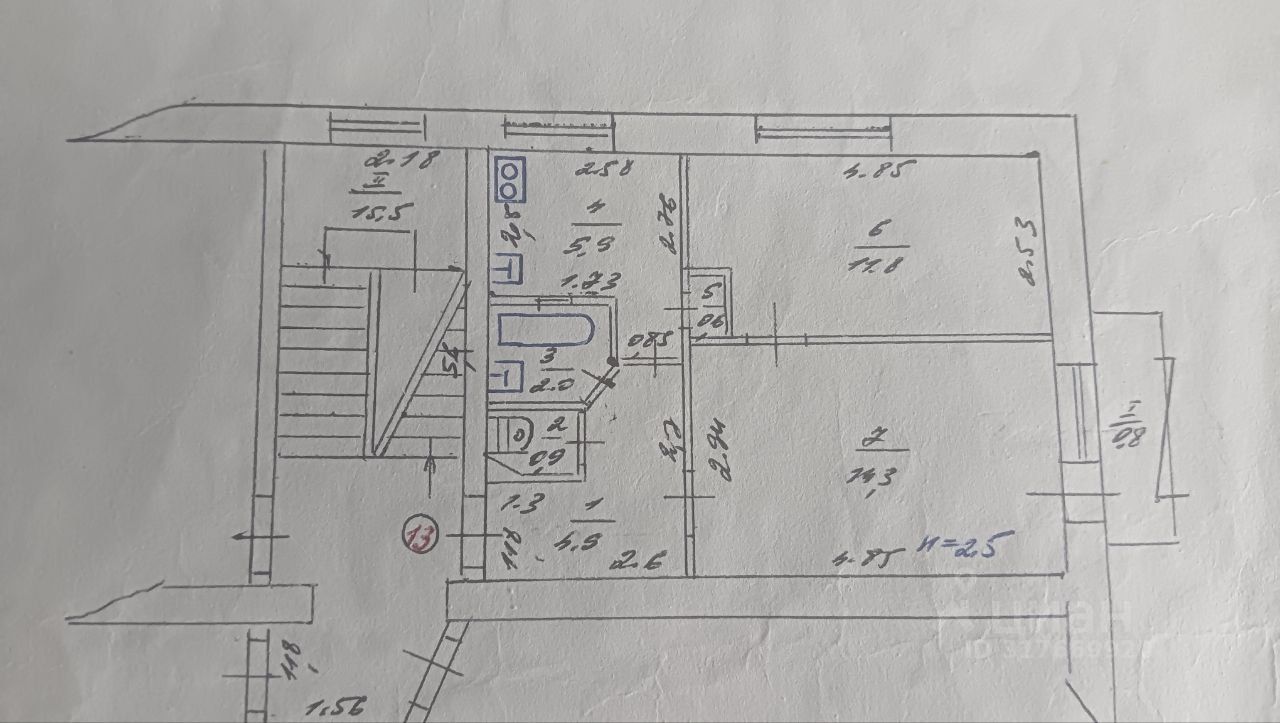 2.18
II
15,5
2.58
4
5,9
2,8
2.26
1.73
4.85
6
11.8
2.53
5
0,6
,085
3
2.0
2
0,9
1.3
1
4,9
1,18
2.6
2.94
7
14,3
4.85
н=2.5
I
0,8
13
1,18
1.56
циан